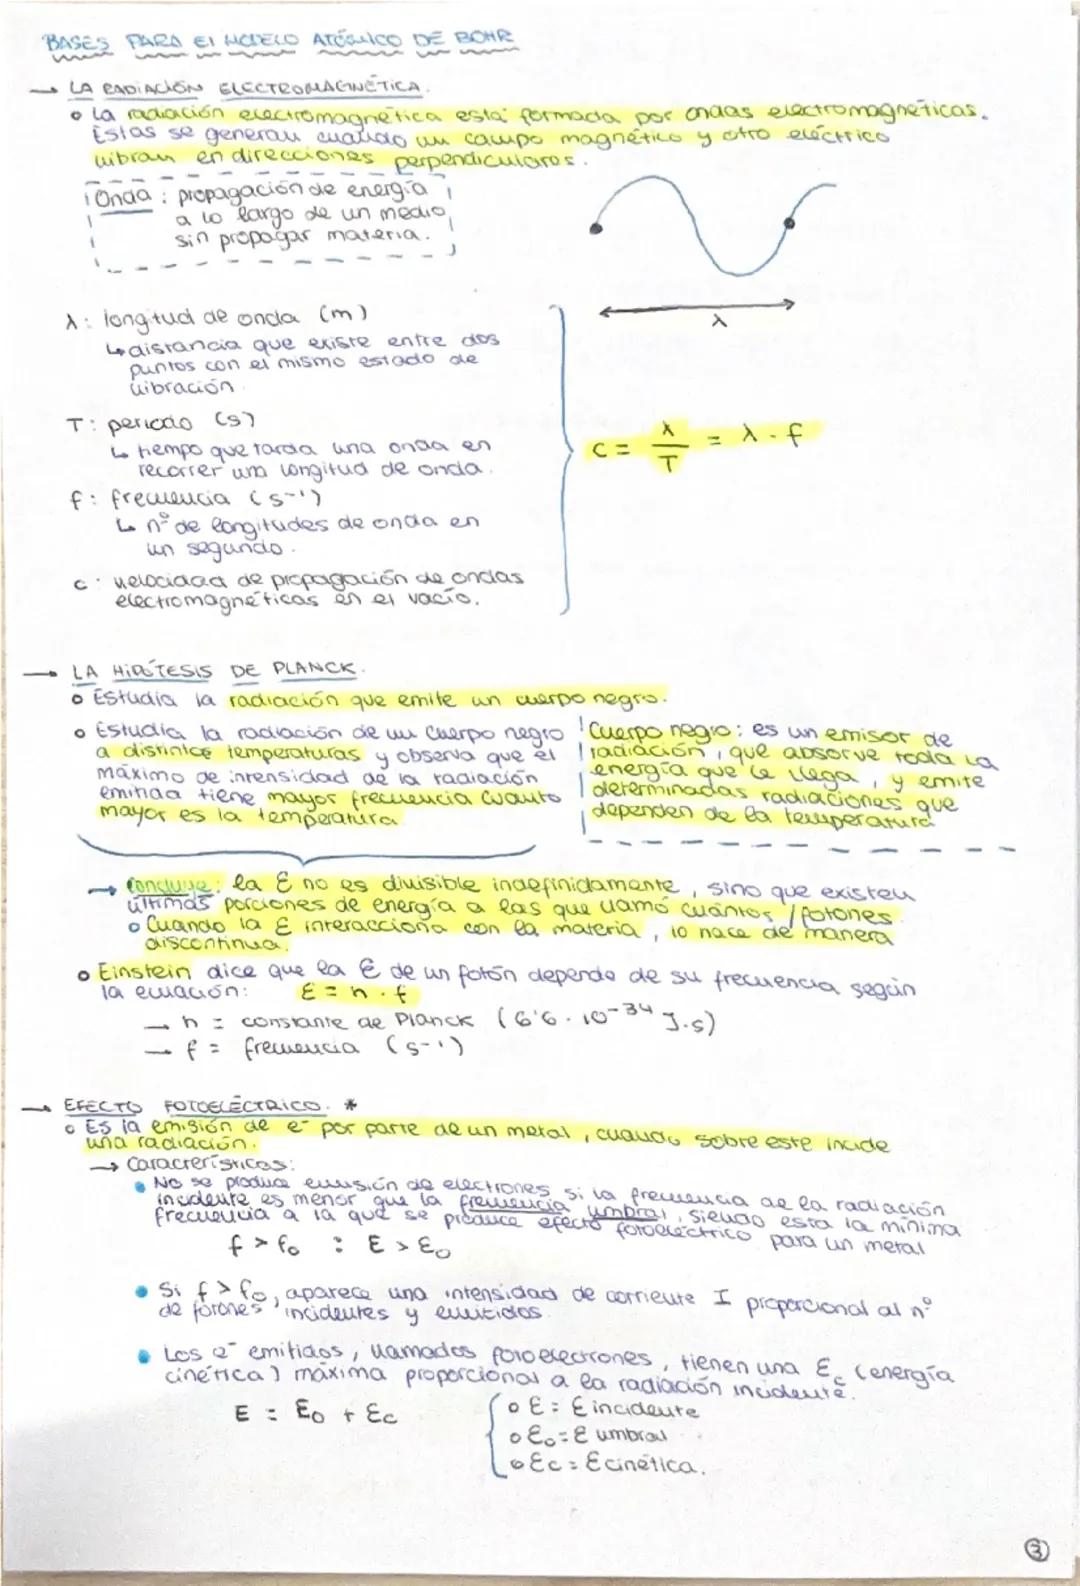 BASES PARA El MODELO ATÓMICO DE BOHR
→ LA RADIACIÓN ELECTROMAGNÉTICA.
o La radiación electromagnética está formada por ondas electromagnéticas.
Estas se generan cuando un campo magnético y otro eléctrico
vibran en direcciones perpendiculares.
Onda: propagación de energía
a lo largo de un medio,
sin propagar materia.
λ
λ: longitud de onda (m)
↳ distancia que existe entre dos
puntos con el mismo estado de
vibración.
T: periodo (s)
↳ tiempo que tarda una onda en
recorrer una longitud de onda.
f: frecuencia (s⁻¹)
↳ nº de longitudes de onda en
un segundo.
c: velocidad de propagación de ondas
electromagnéticas en el vacío.
c = λ/T = λ · f
→ LA HIPÓTESIS DE PLANCK.
o Estudia la radiación que emite un cuerpo negro.
o Estudia la radiación de un cuerpo negro
a distintas temperaturas y observa que el
máximo de intensidad de la radiación
emitida tiene mayor frecuencia cuanto
mayor es la temperatura.
Cuerpo negro: es un emisor de
radiación, que absorve toda la
energía que le llega, y emite
determinadas radiaciones que
dependen de la temperatura
→ Concluye: la E no es divisible indefinidamente, sino que existen
últimas porciones de energía a las que llamó cuantos / fotones.
o Cuando la E interacciona con la materia, lo hace de manera
discontinua.
o Einstein dice que la E de un fotón depende de su frecuencia según
la ecuación: E = h · f
→ h = constante de Planck (6'6 · 10⁻³⁴ J·s)
→ f = frecuencia (s⁻¹)
→ EFECTO FOTOELÉCTRICO. *
o Es la emisión de e⁻ por parte de un metal, cuando sobre este incide
una radiación.
→ Características:
• No se produce emisión de electrones si la frecuencia de la radiación
incidente es menor que la frecuencia umbral, siendo esta la mínima
frecuencia a la que se produce efecto fotoeléctrico para un metal
f > f₀ : E > E₀
• Si f > f₀, aparece una intensidad de corriente I proporcional al nº
de fotones incidentes y emitidos.
• Los e⁻ emitidos, llamados fotoelectrones, tienen una Ec (energía
cinética) máxima proporcional a la radiación incidente.
E = E₀ + Ec
o E = E incidente
o E₀ = E umbral
o Ec = E cinética.
3